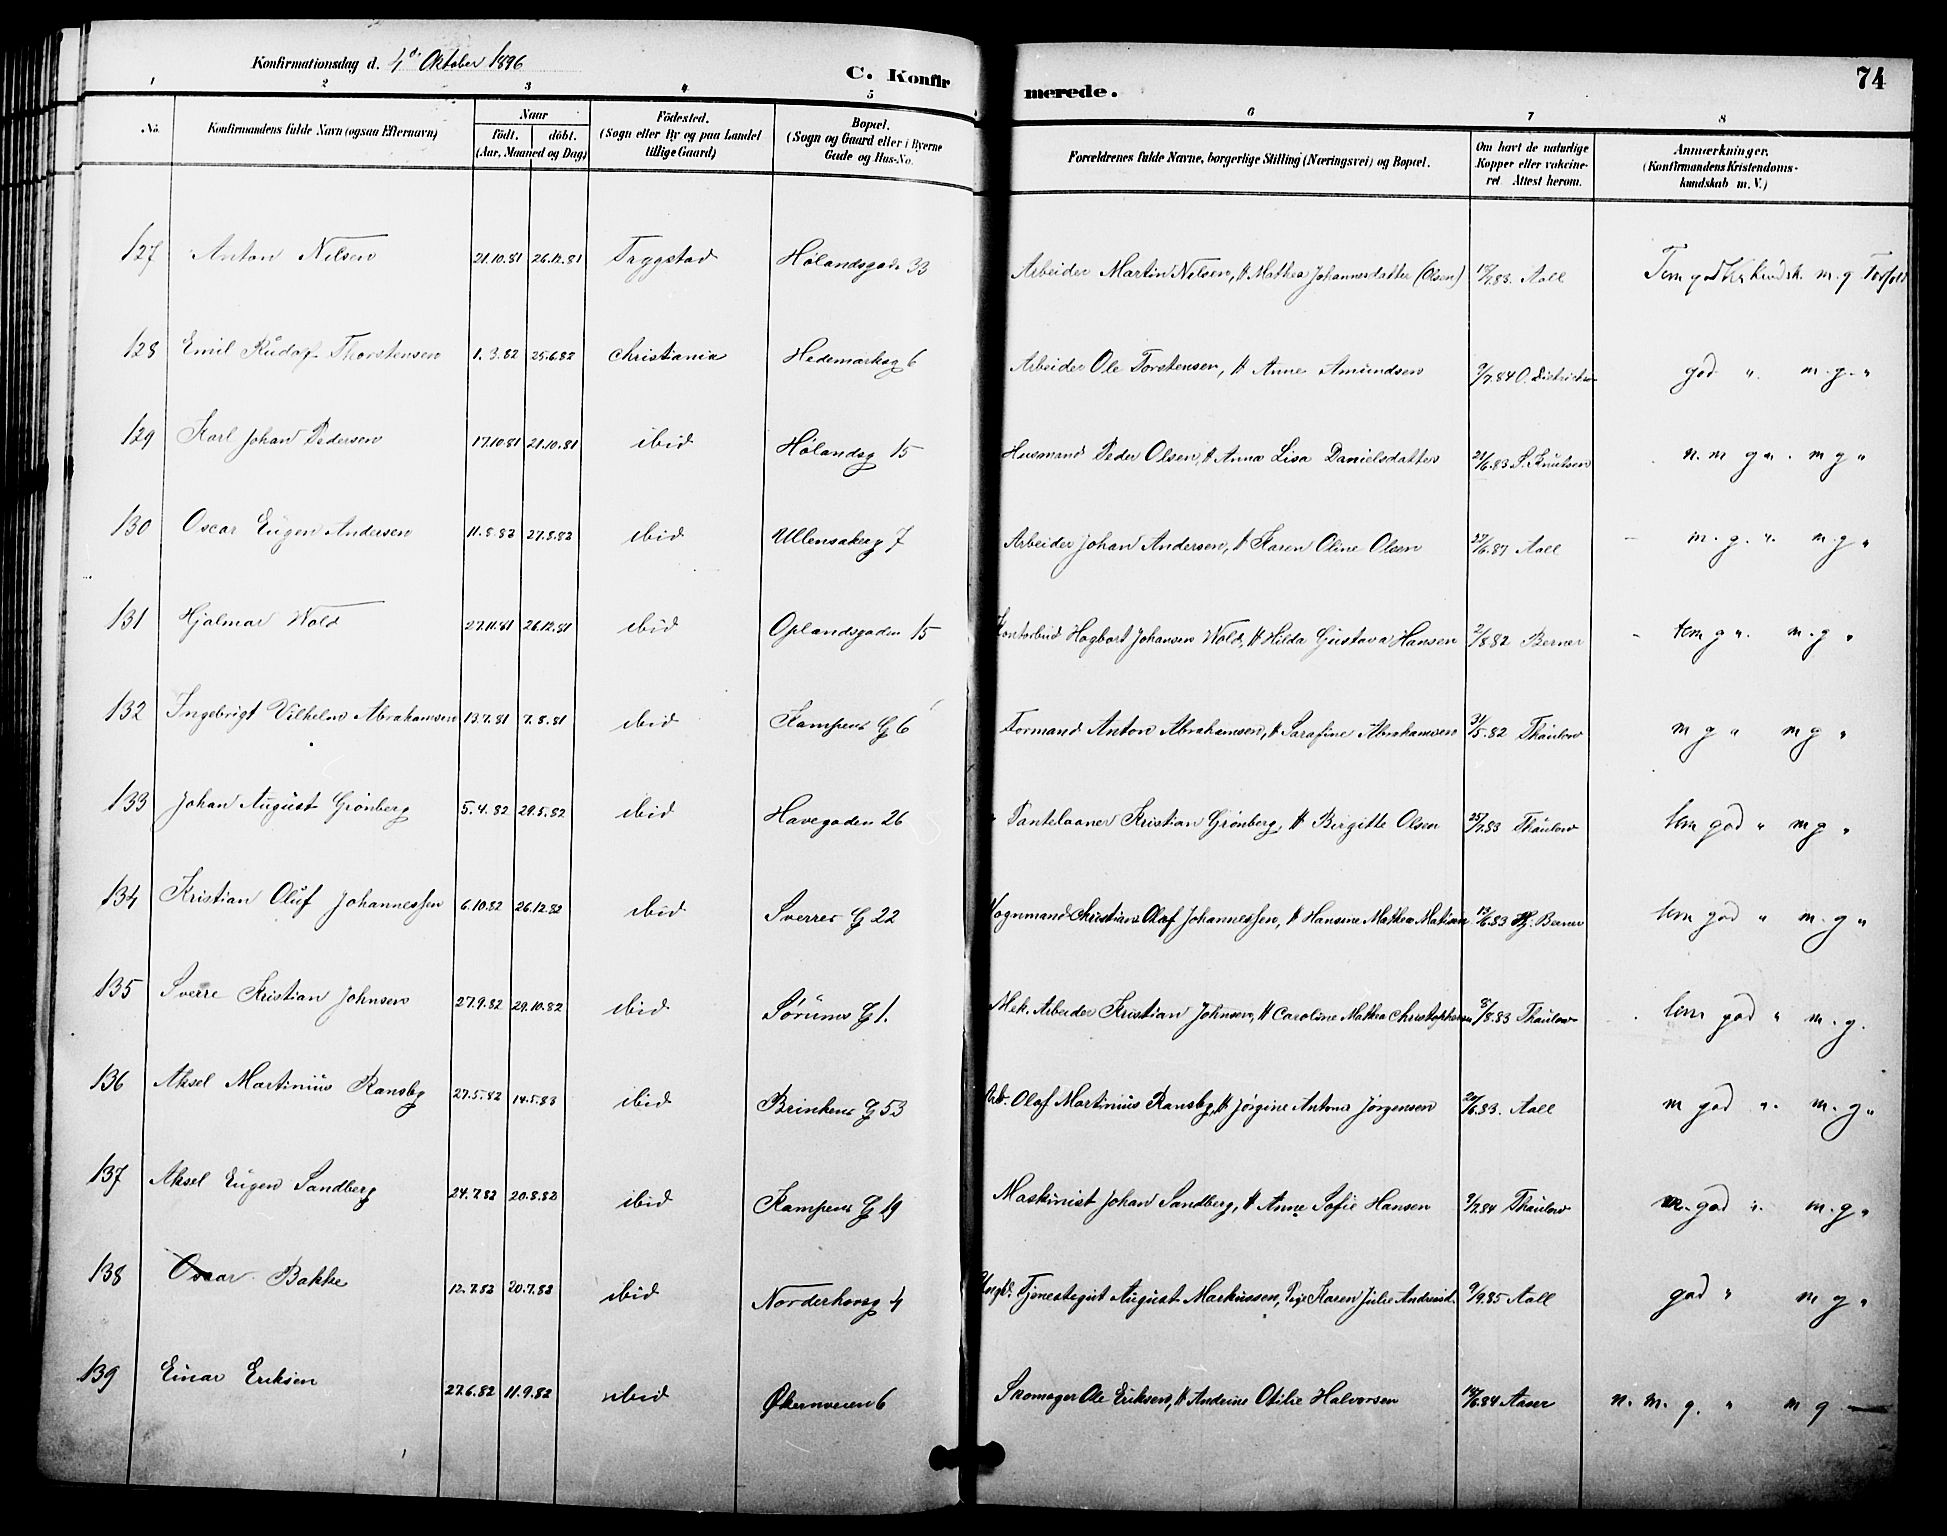 Konfirmationsdag d. 4de Oktober 1896
C. Konfirmerede.
74
1 2 3 4 5 6 7 8
No.
Konfirmandens fulde Navn (ogsaa Efternavn)
Naar
födt. döbt.
(Aar, Maaned og Dag)
Födested.
(Sogn eller By og paa Landet
tillige Gaard)
Bopæl.
(Sogn og Gaard eller i Byerne
Gade og Hus-No.
Forældrenes fulde Navne, borgerlige Stilling (Næringsvei) og Bopæl.
Om havt de naturlige
Kopper eller vakcine-
ret Attest herom.
Anmærkninger.
(Konfirmandens Kristendoms-
kundskab m. V.)
127 Anton Nilsen 21.10.81 26.12.81 Trygstad Hølandsgade 33 Arbeider Martin Nilsen, H Mathea Johannesdatter (Olsen) 7.83. Aall Tem god Kr. kundsk. m. g.
128 Emil Rudolf Thorstensen 1.3.82 25.6.82 Christiania Hedemarksg 6 Arbeider Ole Torstensen, H Anne Amundsen 9/7.84 O. god " m. g. "
129 Karl Johan Pedersen 17.10.81 21.10.81 ibid Hølandsg 15 Husmand Peder Olsen, H Anna Lisa Danielsdatter 21/6.83 S. Knutsen n. m g " m g "
130 Oscar Eugen Andersen 11.8.82 27.8.82 ibid Ullensakerg 7 Arbeider Johan Andersen, H Karen Oline Olsen 27/6.87 Aall m. g. " m. g "
131 Hjalmar Wold 27.11.81 26.12.81 ibid Oplandsgaden 15 Kontorbud Hagbart Johansen Wold, H Hilda Gustava Hansen 2/8.82 Berner tem g " m. g "
132 Ingebrigt Vilhelm Abrahamsen 13.7.81 7.8.81 ibid Kampens G 6 Formand Anton Abrahamsen, H Sarafine Abrahamsen 31/5.82 Thaulow m g " m g "
133 Johan August Grönberg 5.4.82 29.5.82 ibid Havegaden 26 Pantelaaner Kristian Grønberg, H Birgitte Olsen 25/7.83 Thaulow tem god " m g "
134 Kristian Oluf Johannessen 6.10.82 26.12.82 ibid Sverres G 22 Vognmand Christian Olaf Johannessen, H Hansine Mathea Matisen 13/6.83 Hj. Berner tem god " m. g "
135 Sverre Kristian Johnsen 27.9.82 29.10.82 ibid Sørums G 1. Mek. Arbeider Kristian Johnsen, H Caroline Mathea Christophersen 8/8.83 Thaulow tem god " m. g.
136 Aksel Martinius Ransbg 27.5.82 14.5.83 ibid Brinkens G 53 Arb. Olaf Martinius Ransbg, H Jørgine Antona Jørgensen 20/6.83. Aall m god " m. g "
137 Aksel Eugen Sandberg 24.7.82 20.8.82 ibid Kampens G 19 Maskinist Johan Sandberg, H Anne Sofie Hansen 9/7.84 Thaulow m. god " m. g "
138 Oscar Bakke 12.7.82 20.7.82 ibid Norderhovsg 4 Ungk. Tjenestegut August Markussen, Pige Karen Julie Andreasd. 9/9.85 Aall god " m g "
139 Einar Eriksen 27.6.82 11.9.82 ibid Økernveien 6 Skomager Ole Eriksen, H Andrine Otilie Halvorsen 18/6.84 n. m. g. " m g